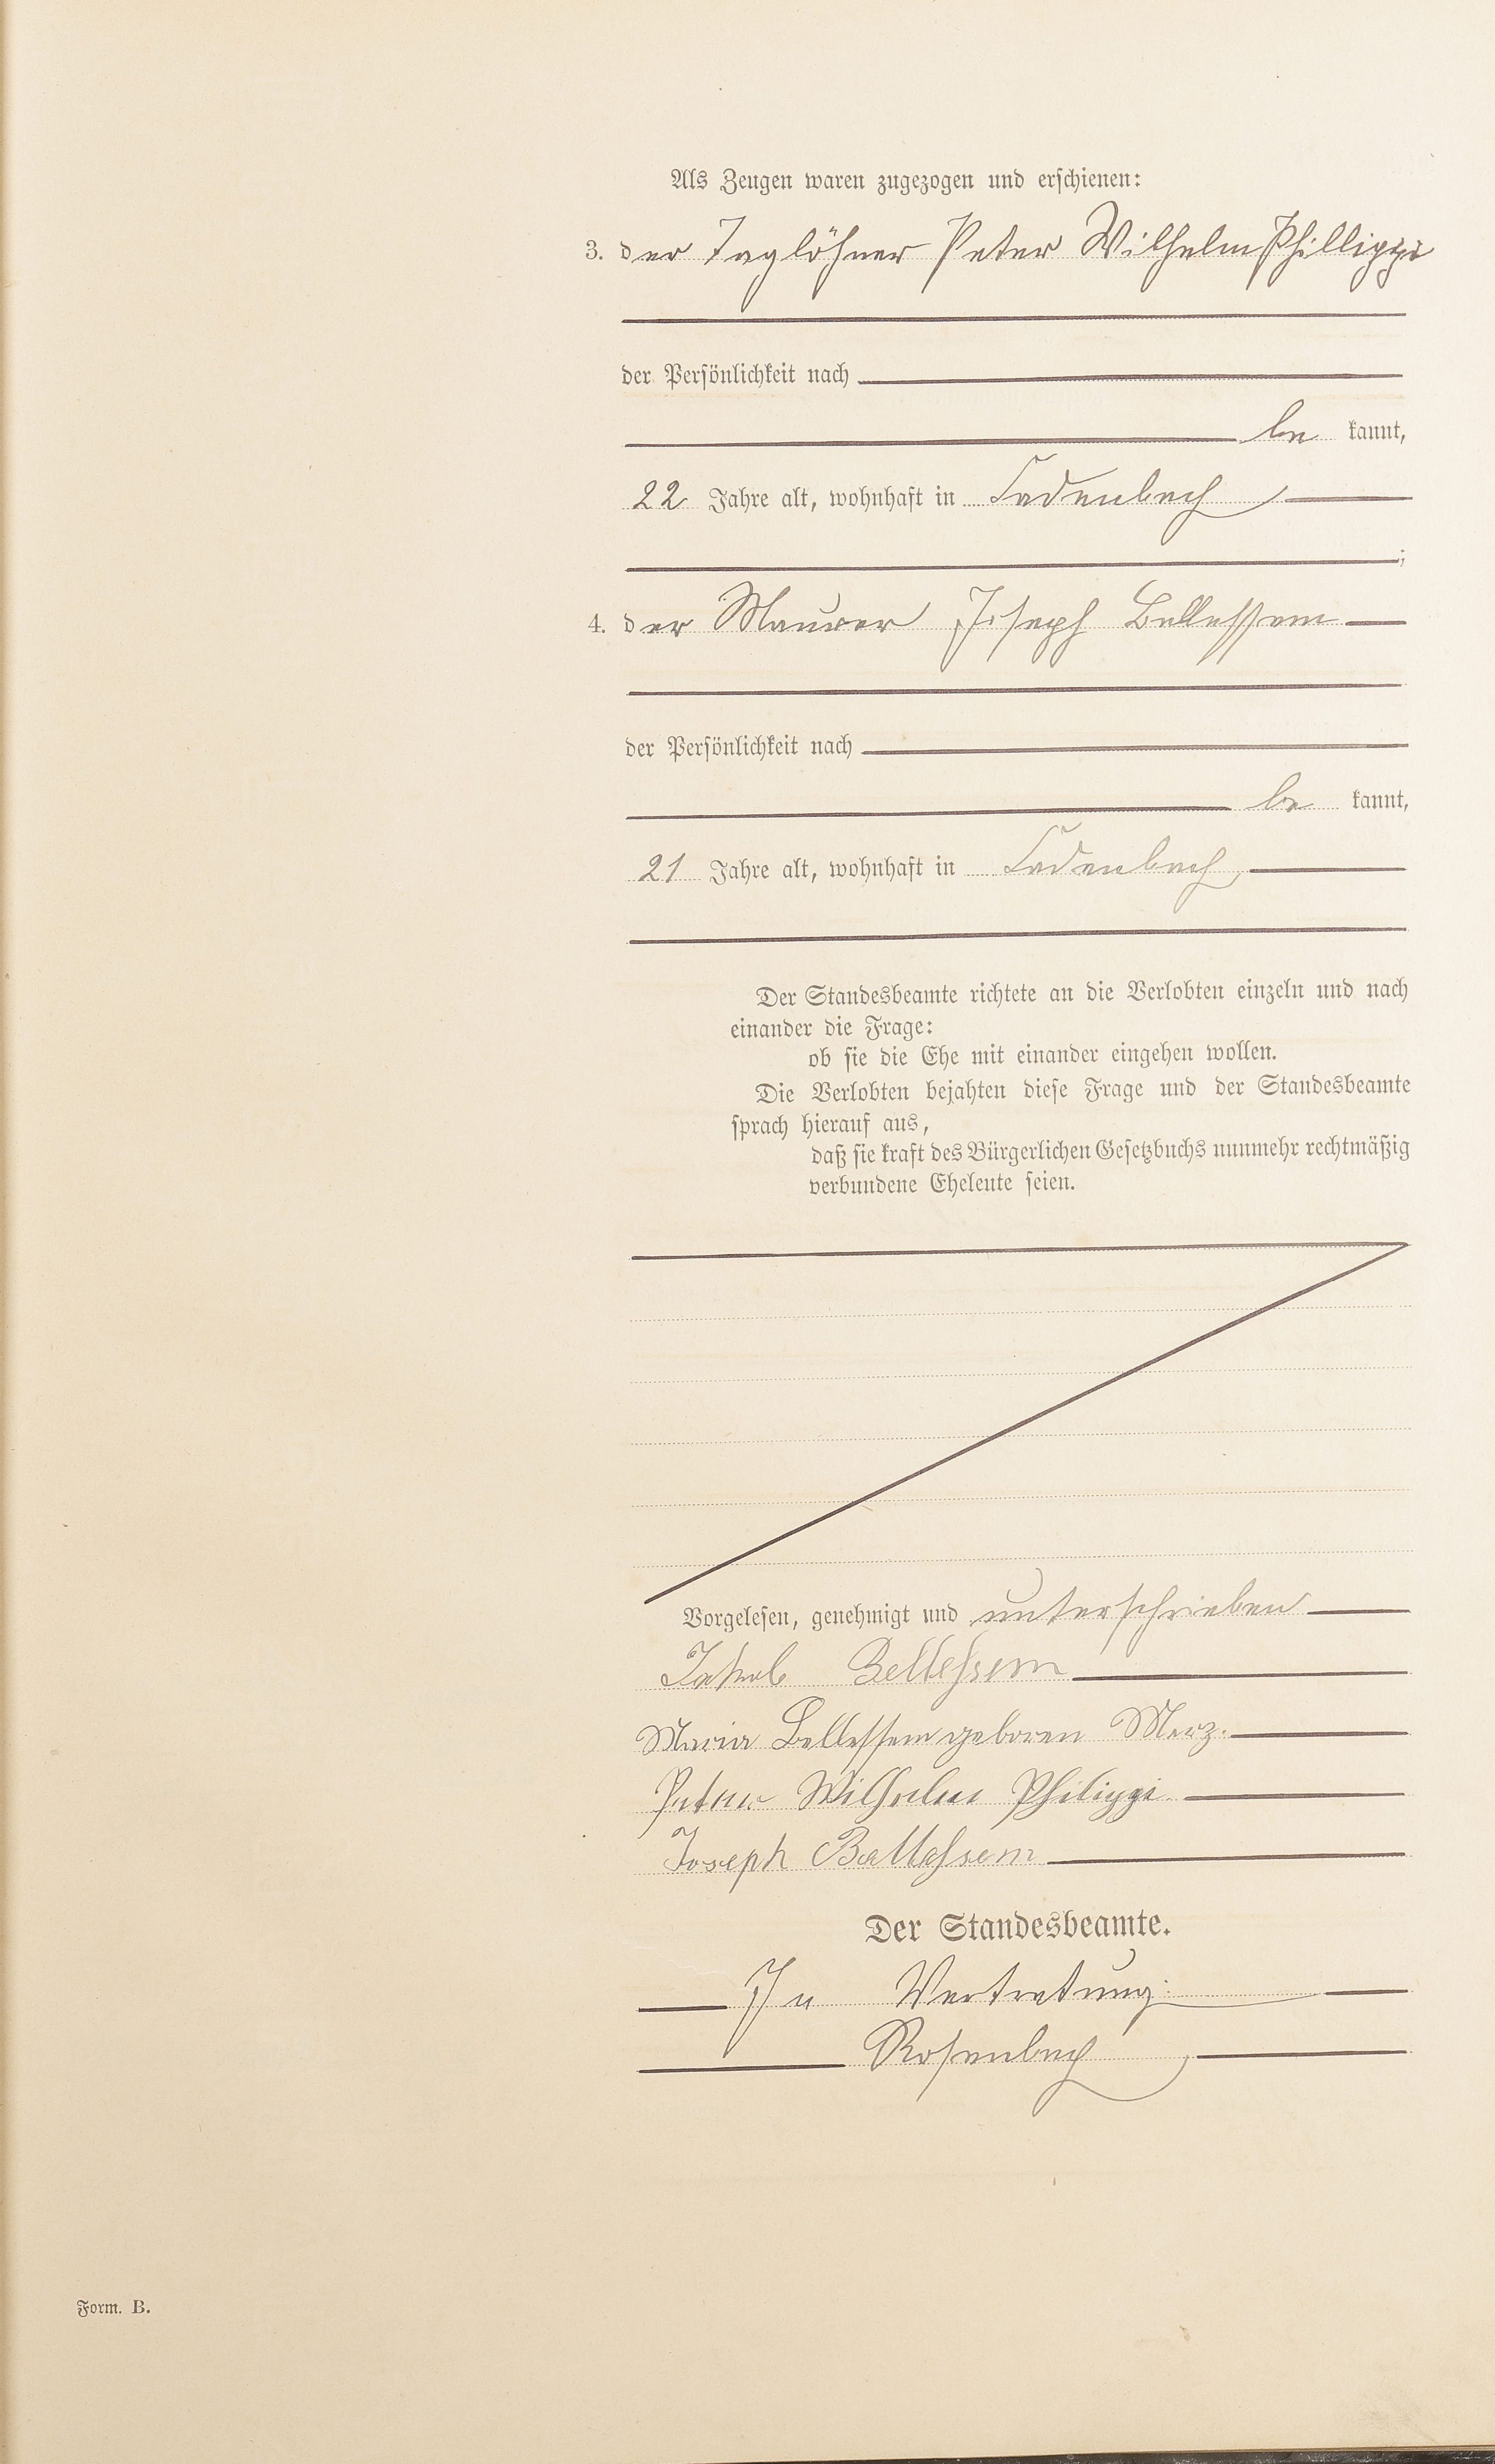 Als Zeugen waren zugezogen und erschienen:
3. der Taglöhner Peter Wilhelm Phillippi
der Persönlichkeit nach
be kannt,
22 Jahre alt, wohnhaft in Cadenbach
;
4. der Maurer Joseph Bellessem
der Persönlichkeit nach
be kannt,
21 Jahre alt, wohnhaft in Cadenbach
Der Standesbeamte richtete an die Verlobten einzeln und nach
einander die Frage:
ob sie die Ehe mit einander eingehen wollen.
Die Verlobten bejahten diese Frage und der Standesbeamte
sprach hierauf aus,
daß sie kraft des Bürgerlichen Gesetzbuchs nunmehr rechtmäßig
verbundene Eheleute seien.
Vorgelesen, genehmigt und unterschrieben
Jakob Bellessem
Maria Bellessem geboren Merz.
Peter Wilhelm Philippi
Joseph Bellessem
Der Standesbeamte.
In Vertretung:
Rosenbach
Form. B.